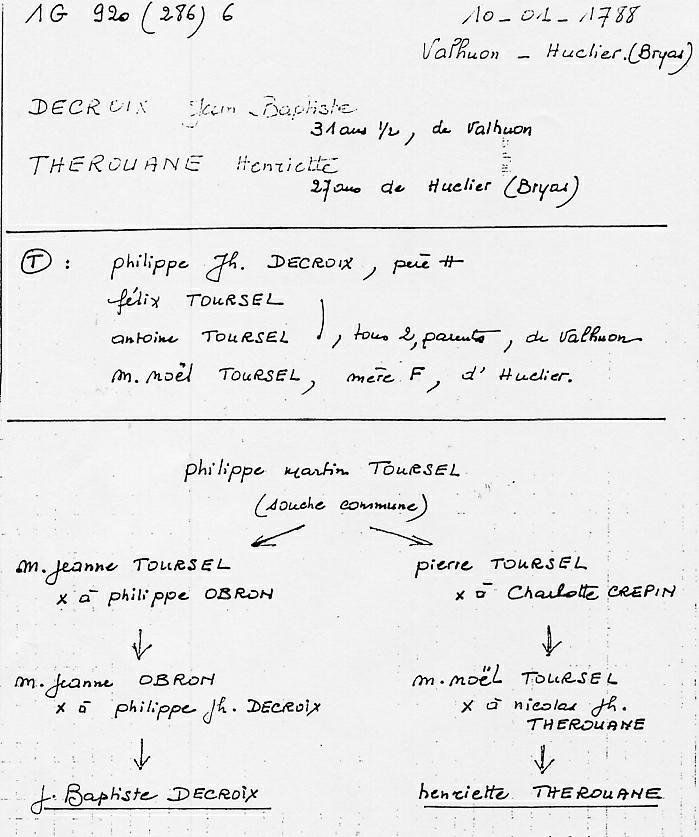 1G 920 (286) 6
10-01-1788
Valhuon - Huclier. (Bryas)
DECROIX Jean Baptiste
31 ans 1/2, de Valhuon
THEROUANE Henriette
27 ans de Huclier (Bryas)
T : philippe Jh. DECROIX, père #
félix TOURSEL
antoine TOURSEL, tous 2, parents, de Valhuon
m. noël TOURSEL, mère F, d'Huclier.
philippe martin TOURSEL
(souche commune)
m. jeanne TOURSEL
x à philippe OBRON
pierre TOURSEL
x à Charlotte CREPIN
m. jeanne OBRON
x à philippe Jh. DECROIX
m. noël TOURSEL
x à nicolas Jh.
THEROUANE
j. Baptiste DECROIX
henriette THEROUANE